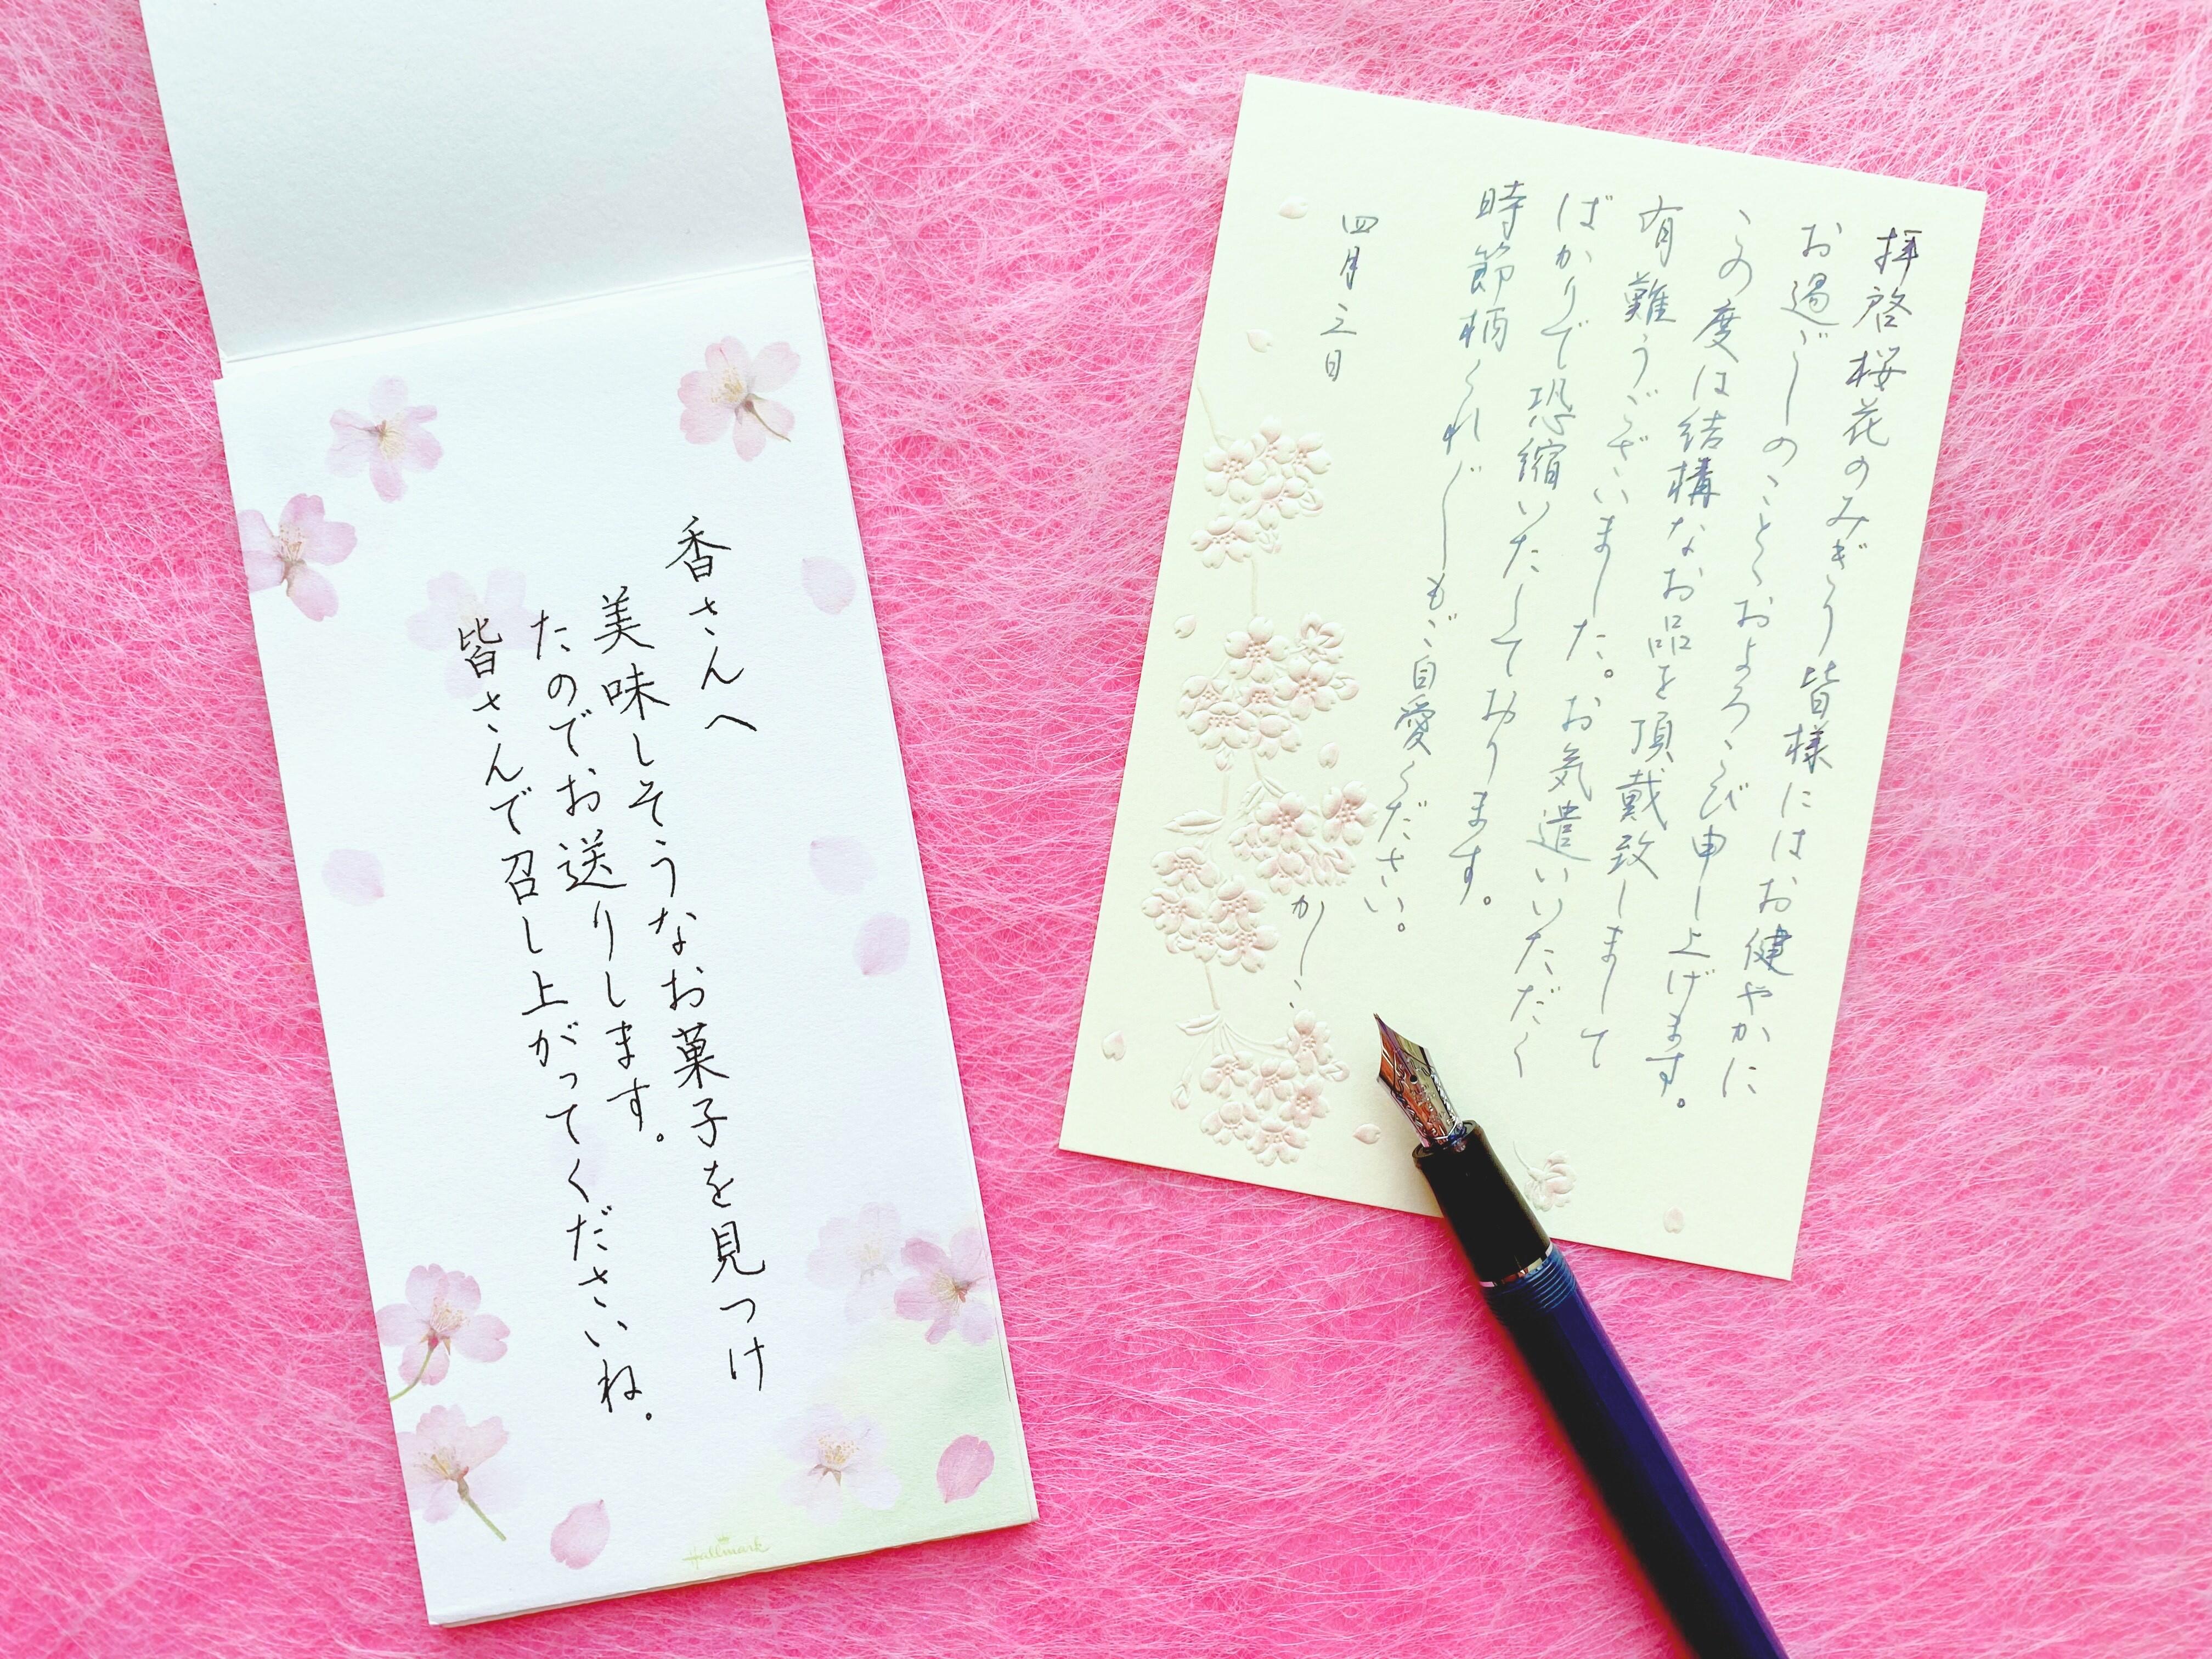 香さんへ
美味しそうなお菓子を見つけ
たのでお送りします。
皆さんで召し上がってくださいね。
Hallmark
拝啓桜花のみぎり皆様にはお健やかに
お過ごしのことゝおよろこび申し上げます。
この度は結構なお品を頂戴致しまして
有難うございました。お気遣いいただく
ばかりで恐縮いたしております。
時節柄くれぐれもご自愛ください。
かしこ
四月三日